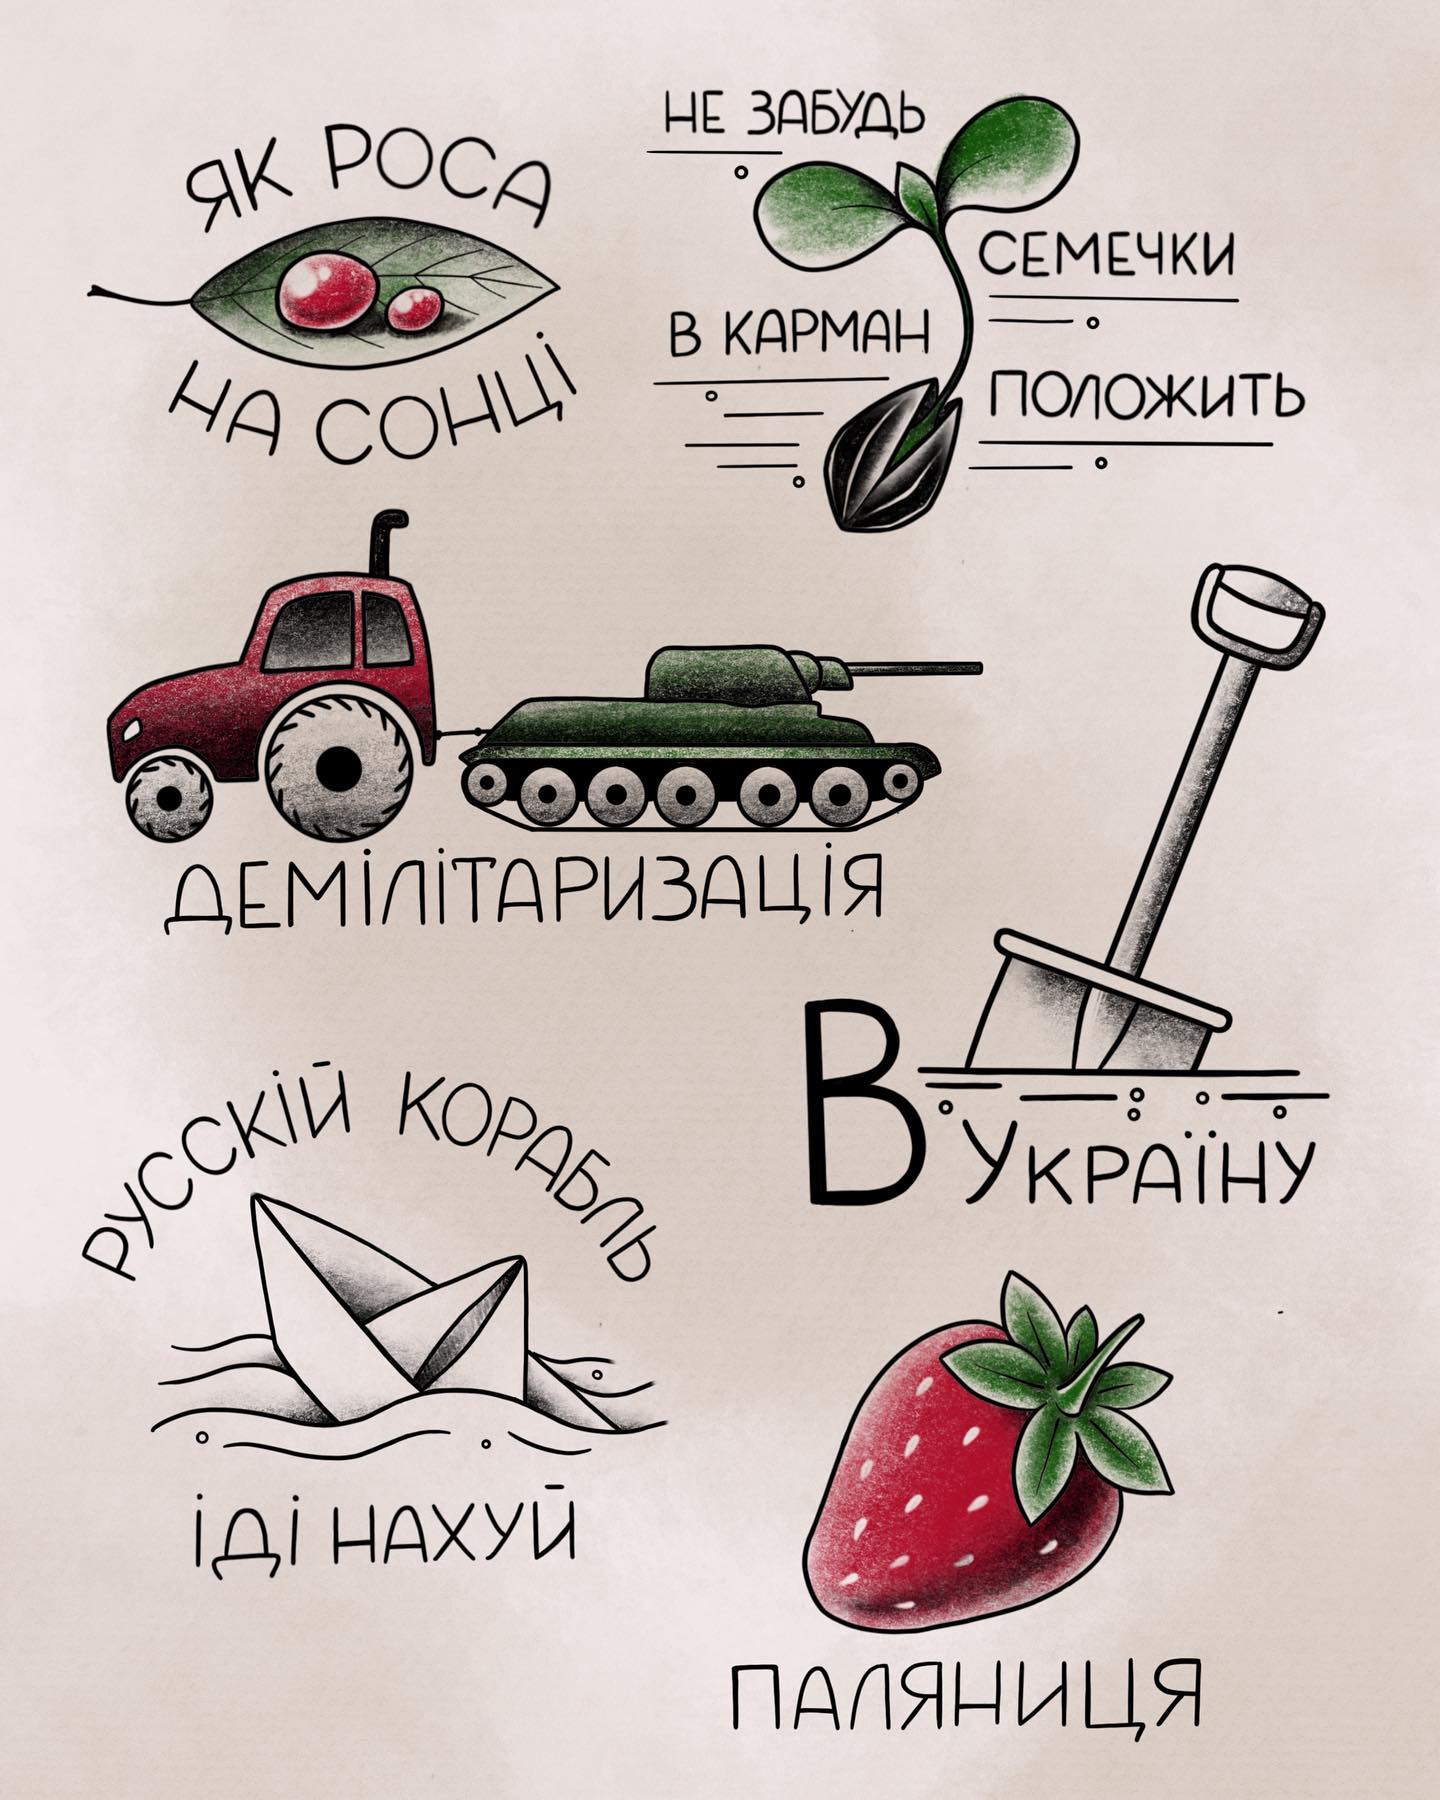 ЯК РОСА
НА СОНЦІ
НЕ ЗАБУДЬ
СЕМЕЧКИ
В КАРМАН
ПОЛОЖИТЬ
ДЕМІЛІТАРИЗАЦІЯ
В УКРАЇНУ
РУССКІЙ КОРАБЛЬ
ІДІ НАХУЙ
ПАЛЯНИЦЯ